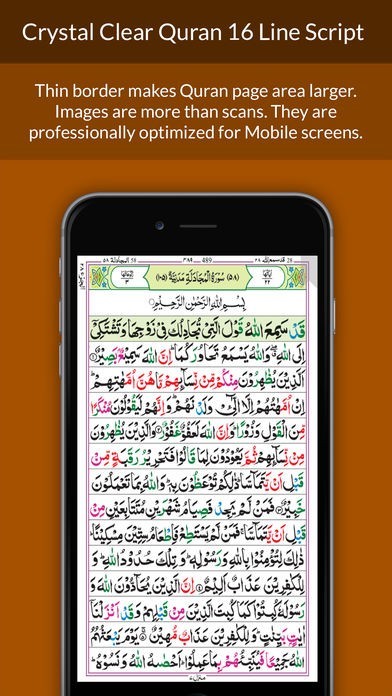 Crystal Clear Quran 16 Line Script
Thin border makes Quran page area larger.
Images are more than scans. They are
professionally optimized for Mobile screens.
المجادلة ٥٨ 58 ٤٨٩ 489 قد سمع الله ٢٨ 28
رکوعاتها ٣ (٥٨) سُوْرَةُ الْمُجَادَلَةِ مَدَنِيَّةٌ (١٠٥) اٰیاتها ٢٢
بِسْمِ اللهِ الرَّحْمٰنِ الرَّحِيْمِ
قَدْ سَمِعَ اللهُ قَوْلَ الَّتِيْ تُجَادِلُكَ فِيْ زَوْجِهَا وَتَشْتَكِيْۤ
اِلَى اللهِ ۖ وَاللهُ يَسْمَعُ تَحَاوُرَكُمَا ؕ اِنَّ اللهَ سَمِيْعٌۢ بَصِيْرٌ ①
اَلَّذِيْنَ يُظٰهِرُوْنَ مِنْكُمْ مِّنْ نِّسَآئِهِمْ مَّا هُنَّ اُمَّهٰتِهِمْ ؕ
اِنْ اُمَّهٰتُهُمْ اِلَّا الّٰٓـِٔيْ وَلَدْنَهُمْ ؕ وَاِنَّهُمْ لَيَقُوْلُوْنَ مُنْكَرًا
مِّنَ الْقَوْلِ وَزُوْرًا ؕ وَاِنَّ اللهَ لَعَفُوٌّ غَفُوْرٌ ② وَالَّذِيْنَ يُظٰهِرُوْنَ
مِنْ نِّسَآئِهِمْ ثُمَّ يَعُوْدُوْنَ لِمَا قَالُوْا فَتَحْرِيْرُ رَقَبَةٍ مِّنْ
قَبْلِ اَنْ يَّتَمَآسَّا ؕ ذٰلِكُمْ تُوْعَظُوْنَ بِهٖ ؕ وَاللهُ بِمَا تَعْمَلُوْنَ
خَبِيْرٌ ③ فَمَنْ لَّمْ يَجِدْ فَصِيَامُ شَهْرَيْنِ مُتَتَابِعَيْنِ مِنْ
قَبْلِ اَنْ يَّتَمَآسَّا ۚ فَمَنْ لَّمْ يَسْتَطِعْ فَاِطْعَامُ سِتِّيْنَ مِسْكِيْنًا ؕ
ذٰلِكَ لِتُؤْمِنُوْا بِاللهِ وَرَسُوْلِهٖ ؕ وَتِلْكَ حُدُوْدُ اللهِ ؕ وَ
لِلْكٰفِرِيْنَ عَذَابٌ اَلِيْمٌ ④ اِنَّ الَّذِيْنَ يُحَآدُّوْنَ اللهَ وَ
رَسُوْلَهٗ كُبِتُوْا كَمَا كُبِتَ الَّذِيْنَ مِنْ قَبْلِهِمْ وَقَدْ اَنْزَلْنَاۤ
اٰيٰتٍۢ بَيِّنٰتٍ ؕ وَلِلْكٰفِرِيْنَ عَذَابٌ مُّهِيْنٌ ⑤ يَوْمَ يَبْعَثُهُمُ
اللهُ جَمِيْعًا فَيُنَبِّئُهُمْ بِمَا عَمِلُوْا ؕ اَحْصٰىهُ اللهُ وَنَسُوْهُ ؕ